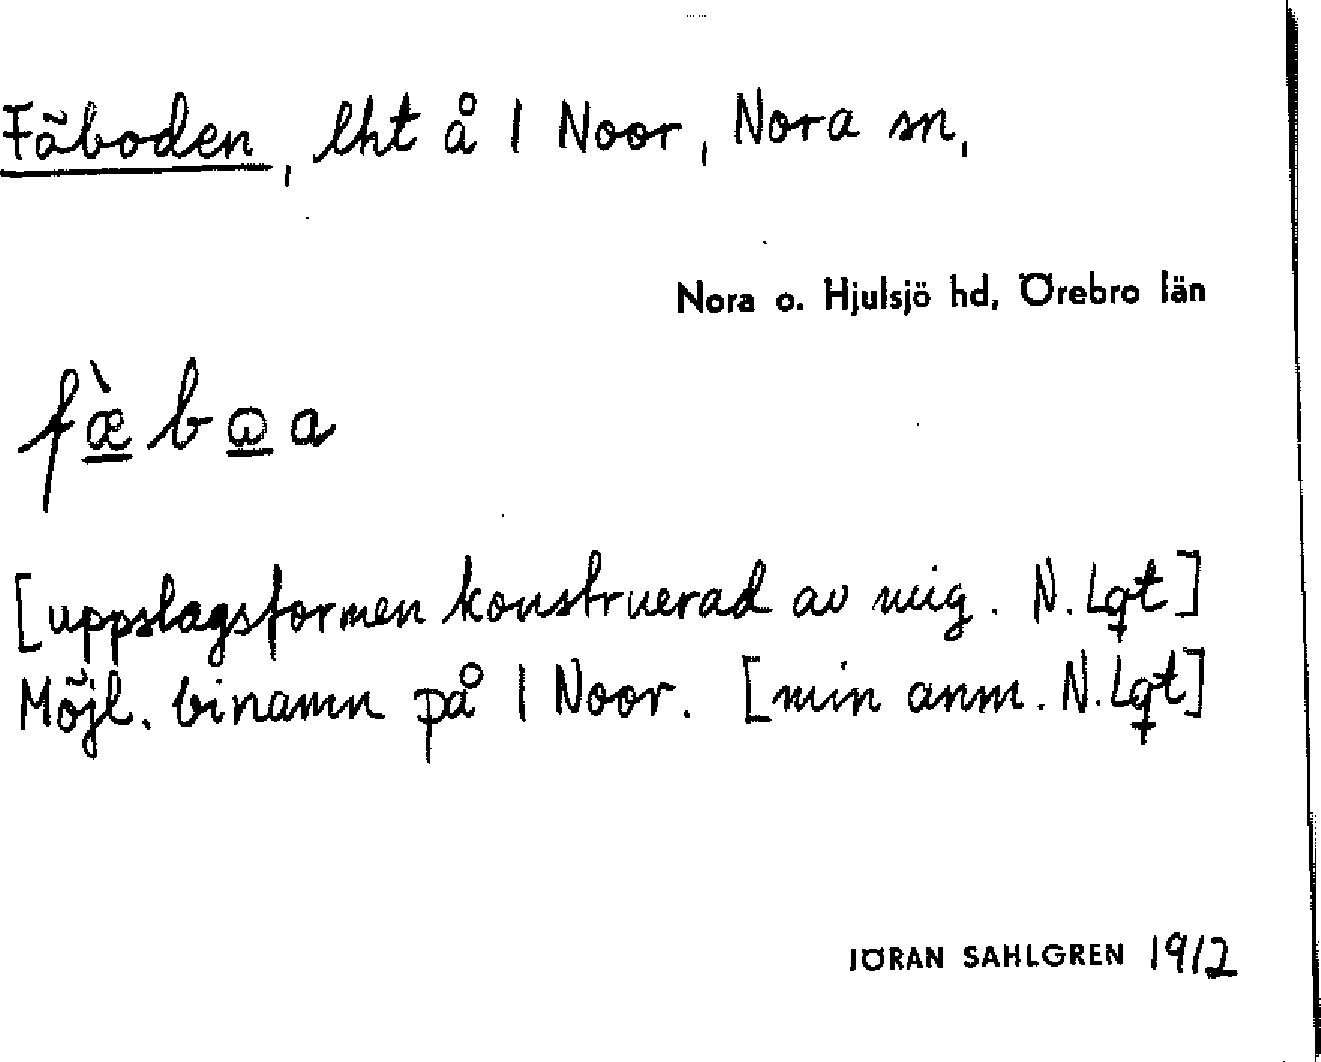 Fäboden, lht å 1 Noor, Nora sn,
Nora o. Hjulsjö hd, Örebro län
fæ̀bωa
[uppslagsformen konstruerad av mig. N. Lgt]
Möjl. binamn på 1 Noor. [min anm. N. Lgt]
JÖRAN SAHLGREN 1912